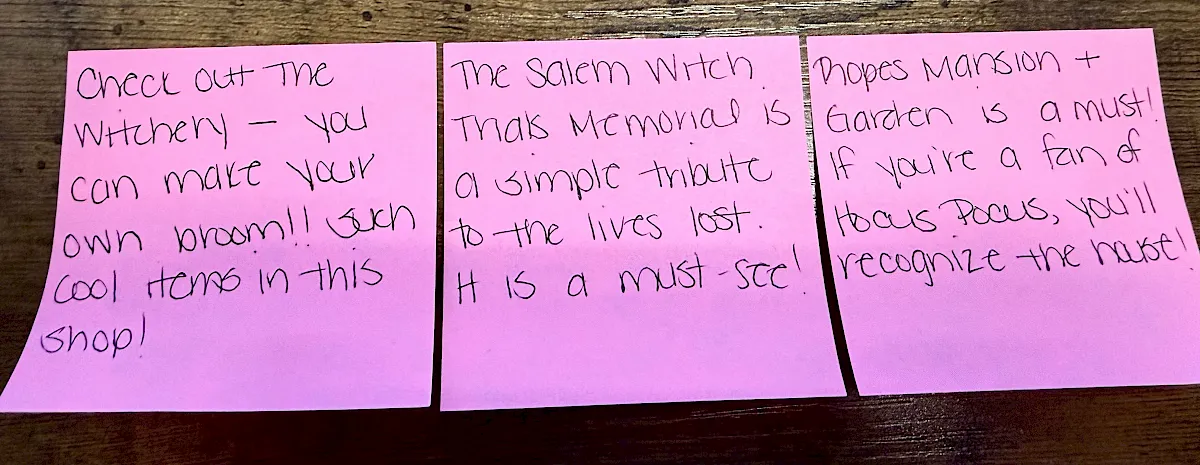 Check out The
Witchery — you
can make your
own broom!! Such
cool items in this
shop!
The Salem Witch
Trials Memorial is
a simple tribute
to the lives lost.
It is a must-see!
Ropes Mansion +
Garden is a must!
If you're a fan of
Hocus Pocus, you'll
recognize the house!